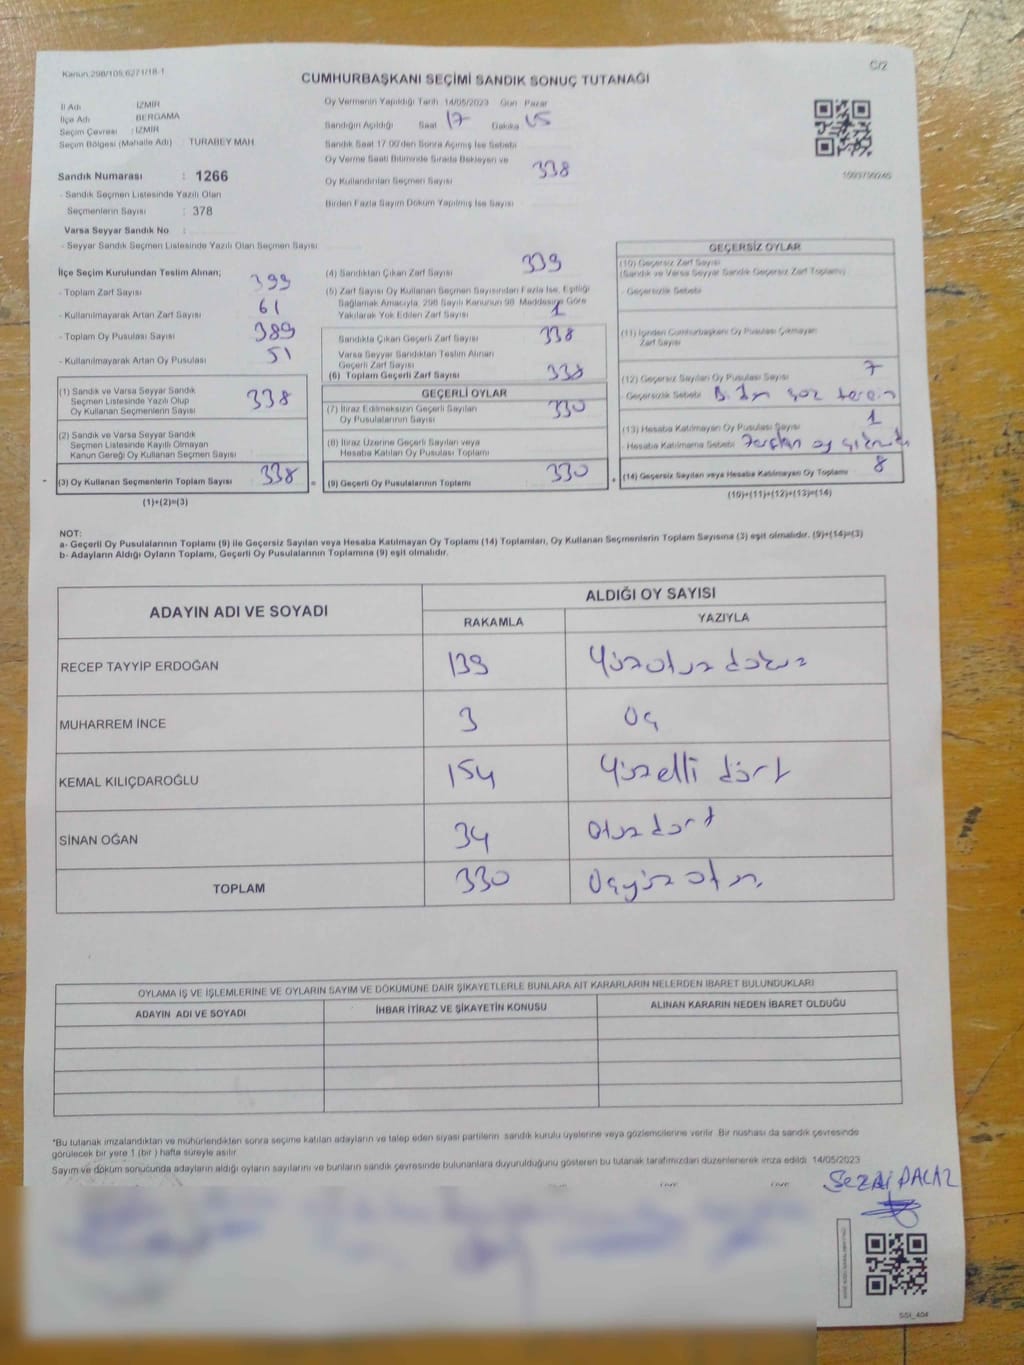 Kanun.298/105,6271/18-1
C/2
CUMHURBAŞKANI SEÇİMİ SANDIK SONUÇ TUTANAĞI
İl Adı İZMİR
İlçe Adı BERGAMA
Seçim Çevresi : İZMİR
Seçim Bölgesi (Mahalle Adı) : TURABEY MAH
Sandık Numarası : 1266
- Sandık Seçmen Listesinde Yazılı Olan
Seçmenlerin Sayısı : 378
Varsa Seyyar Sandık No :
- Seyyar Sandık Seçmen Listesinde Yazılı Olan Seçmen Sayısı :
Oy Vermenin Yapıldığı Tarih 14/05/2023 Gün Pazar
Sandığın Açıldığı Saat 17 Dakika 45
Sandık Saat 17.00'den Sonra Açımış İse Sebebi
Oy Verme Saati Bitiminde Sırada Bekleyen ve
Oy Kullandırılan Seçmen Sayısı 338
Birden Fazla Sayım Döküm Yapılmış İse Sayısı
İlçe Seçim Kurulundan Teslim Alınan;
- Toplam Zarf Sayısı : 399
- Kullanılmayarak Artan Zarf Sayısı : 61
- Toplam Oy Pusulası Sayısı : 389
- Kullanılmayarak Artan Oy Pusulası : 51
(1) Sandık ve Varsa Seyyar Sandık
Seçmen Listesinde Yazılı Olup
Oy Kullanan Seçmenlerin Sayısı : 338
(2) Sandık ve Varsa Seyyar Sandık
Seçmen Listesinde Kayıtlı Olmayan
Kanun Gereği Oy Kullanan Seçmen Sayısı :
(3) Oy Kullanan Seçmenlerin Toplam Sayısı : 338
(1)+(2)=(3)
(4) Sandıktan Çıkan Zarf Sayısı 339
(5) Zarf Sayısı Oy Kullanan Seçmen Sayısından Fazla İse, Eşitliği
Sağlamak Amacıyla, 298 Sayılı Kanunun 98. Maddesine Göre
Yakılarak Yok Edilen Zarf Sayısı 1
Sandıkta Çıkan Geçerli Zarf Sayısı 338
Varsa Seyyar Sandıktan Teslim Alınan
Geçerli Zarf Sayısı
(6) Toplam Geçerli Zarf Sayısı 338
GEÇERLİ OYLAR
(7) İtiraz Edilmeksizin Geçerli Sayılan
Oy Pusulalarının Sayısı 330
(8) İtiraz Üzerine Geçerli Sayılan veya
Hesaba Katılan Oy Pusulası Toplamı
(9) Geçerli Oy Pusulalarının Toplamı 330
GEÇERSİZ OYLAR
(10) Geçersiz Zarf Sayısı
(Sandık ve Varsa Seyyar Sandık Geçersiz Zarf Toplamı)
- Geçersizlik Sebebi
(11) İçinden Cumhurbaşkanı Oy Pusulası Çıkmayan
Zarf Sayısı
(12) Geçersiz Sayılan Oy Pusulası Sayısı 7
- Geçersizlik Sebebi
(13) Hesaba Katılmayan Oy Pusulası Sayısı 1
- Hesaba Katılmama Sebebi oy
(14) Geçersiz Sayılan veya Hesaba Katılmayan Oy Toplamı 8
(10)+(11)+(12)+(13)=(14)
NOT:
a- Geçerli Oy Pusulalarının Toplamı (9) ile Geçersiz Sayılan veya Hesaba Katılmayan Oy Toplamı (14) Toplamları, Oy Kullanan Seçmenlerin Toplam Sayısına (3) eşit olmalıdır. (9)+(14)=(3)
b- Adayların Aldığı Oyların Toplamı, Geçerli Oy Pusulalarının Toplamına (9) eşit olmalıdır.
ADAYIN ADI VE SOYADI ALDIĞI OY SAYISI
RAKAMLA YAZIYLA
RECEP TAYYİP ERDOĞAN 139 Yüzotuz dokuz
MUHARREM İNCE 3 Üç
KEMAL KILIÇDAROĞLU 154 Yüzelli dört
SİNAN OĞAN 34 Otuz dört
TOPLAM 330 Üçyüz otuz
OYLAMA İŞ VE İŞLEMLERİNE VE OYLARIN SAYIM VE DÖKÜMÜNE DAİR ŞİKAYETLERLE BUNLARA AİT KARARLARIN NELERDEN İBARET BULUNDUKLARI
ADAYIN ADI VE SOYADI İHBAR İTİRAZ VE ŞİKAYETİN KONUSU ALINAN KARARIN NEDEN İBARET OLDUĞU
*Bu tutanak imzalandıktan ve mühürlendikten sonra seçime katılan adayların ve talep eden siyasi partilerin sandık kurulu üyelerine veya gözlemcilerine verilir. Bir nüshası da sandık çevresinde
görülecek bir yere 1 (bir) hafta süreyle asılır.
Sayım ve döküm sonucunda adayların aldığı oyların sayılarını ve bunların sandık çevresinde bulunanlara duyurulduğunu gösteren bu tutanak tarafımızdan düzenlenerek imza edildi. 14/05/2023
SEZAİ